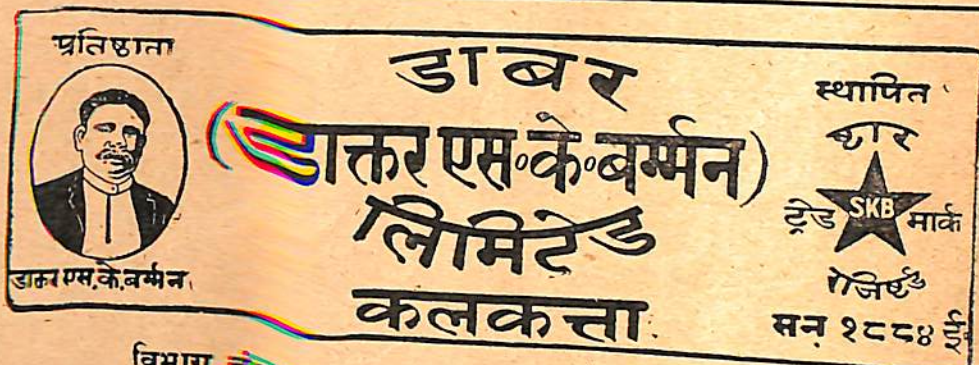 प्रतिष्ठाता
डाक्तर एस.के.बर्म्मन
डाबर
(डाक्तर एस॰के॰बर्म्मन)
लिमिटेड
कलकत्ता
स्थापित
ष्टार
SKB
ट्रेड मार्क
रेजिष्टर्ड
सन् १८८४ ई॰
विभाग